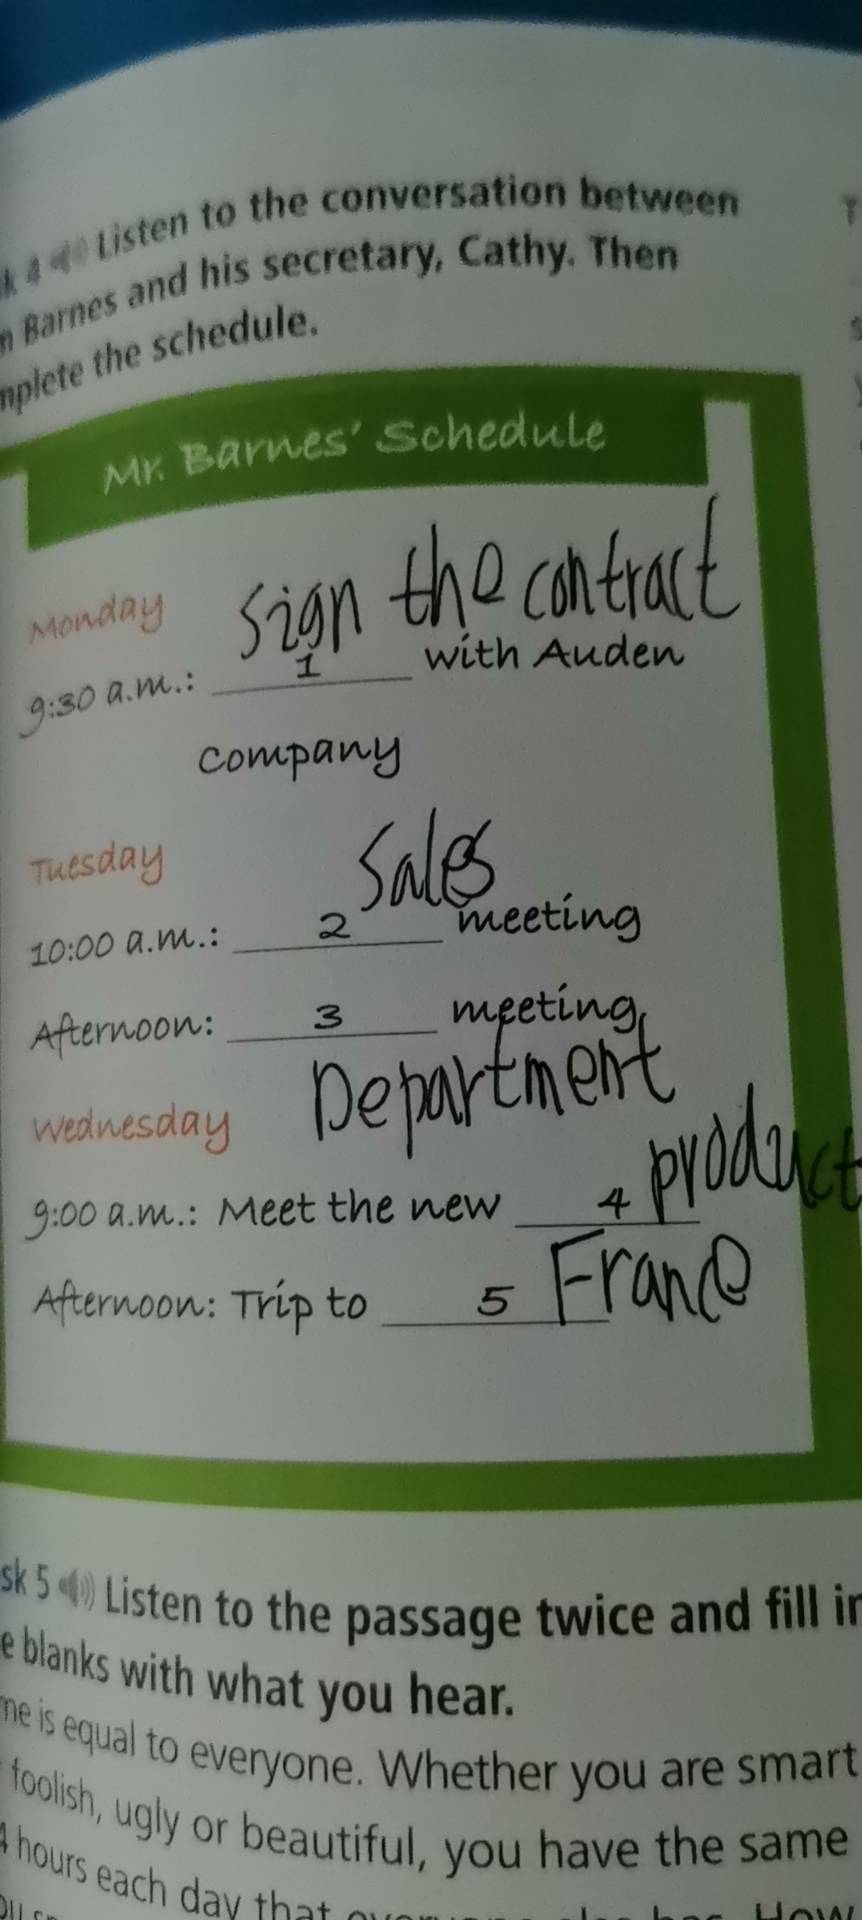 Listen to the conversation between
Barnes and his secretary, Cathy. Then
the schedule.
Mr. Barnes' Schedule
Monday
sign the contract
9:30 a.m.: 1 with Auden
company
Tuesday
Sales
10:00 a.m.: 2 meeting
Afternoon: 3 meeting
Department
Wednesday
9:00 a.m.: Meet the new 4 product
Afternoon: Trip to 5 France
sk 5 Listen to the passage twice and fill in
e blanks with what you hear.
me is equal to everyone. Whether you are smart
foolish, ugly or beautiful, you have the same
4 hours each day that